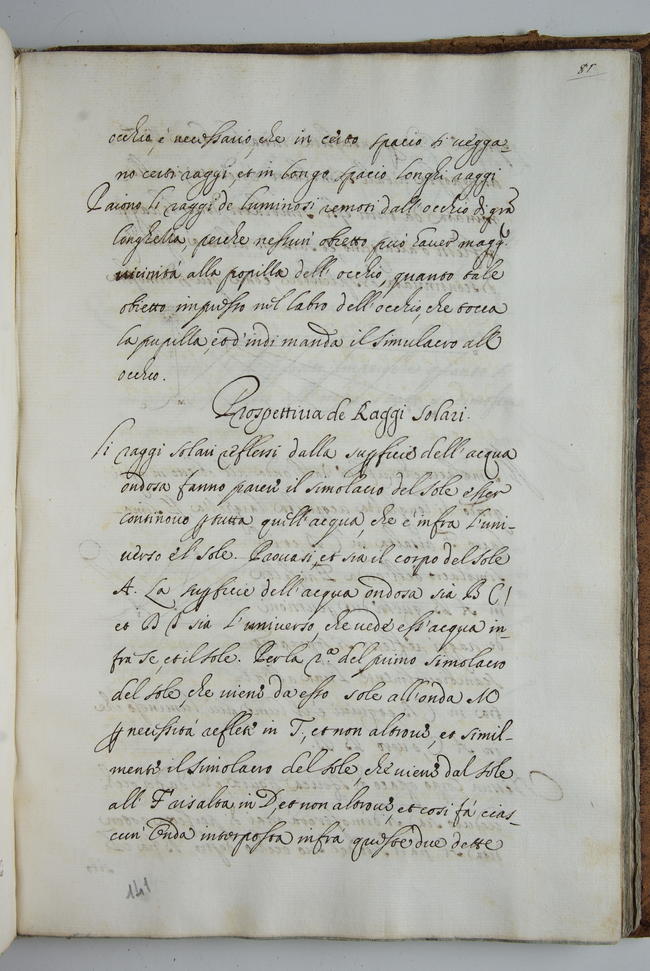 81
occhio, è necessario, che in certo spacio si uegga-
no certi raggi et in longo spacio longhi raggi
Paiono li raggi de luminosi remoti dall'occhio di grã
longhezza, perche nessun' obietto può hauer magg.
uicinità alla popilla dell' occhio, quanto tale
obietto impresso nel labro dell'occhio, che tocca
la pupilla, et d'indi manda il simulacro all
occhio.
Prospettiua de Raggi solari.
li raggi solari reflessi dalla supficie dell'acqua
ondosa fanno parere il simolacro del sole esser
continouo p tutta quell'acqua, che è infra l'uni-
uerso e'l sole. Prouasi, et sia il corpo del sole
A. La supficie dell'acqua ondosa sia B C
et B D sia l'uniuerso, che uede ess'acqua in-
fra se, et il sole. Per la 2.ª del primo simolacro
del sole che uiene da esso sole all'onda M
p necessità reflete in T, et non altroue, et simil-
mente il simolacro del sole, che uiene dal sole
all' F risalta in D et non altroue, et cosi fà cias-
cun' onda interposta infrà queste due dette
141